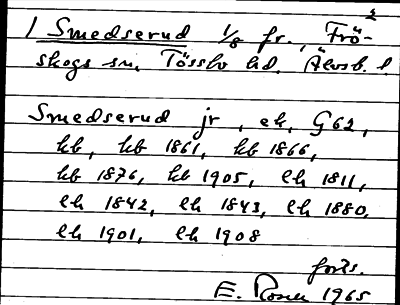 2
1 Smedserud 1/8 fr., Frö-
skogs sn, Tössbo hd, Älvsb. l.
Smedserud jr, ek, G62,
kb, kb 1861, kb 1866,
kb 1876, kb 1905, lh 1811,
lh 1842, lh 1843, lh 1880,
lh 1901, lh 1908
forts.
E. Rosen 1965